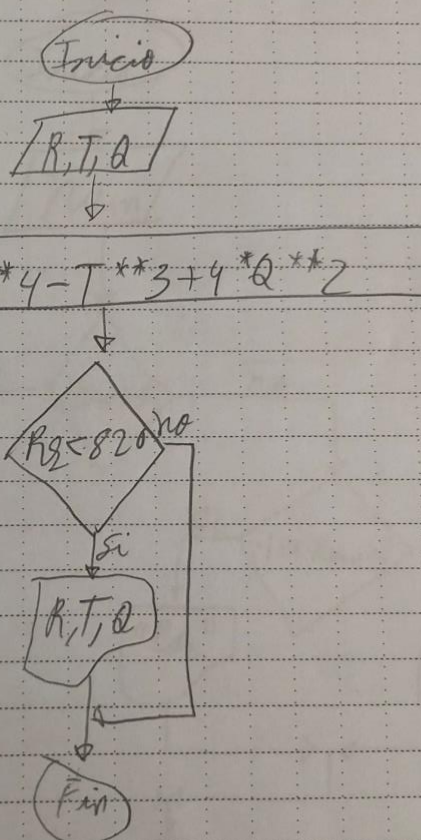 Inicio
R, T, Q
*4-T**3+4*Q**2
Rq<820
no
Si
R, T, Q
Fin